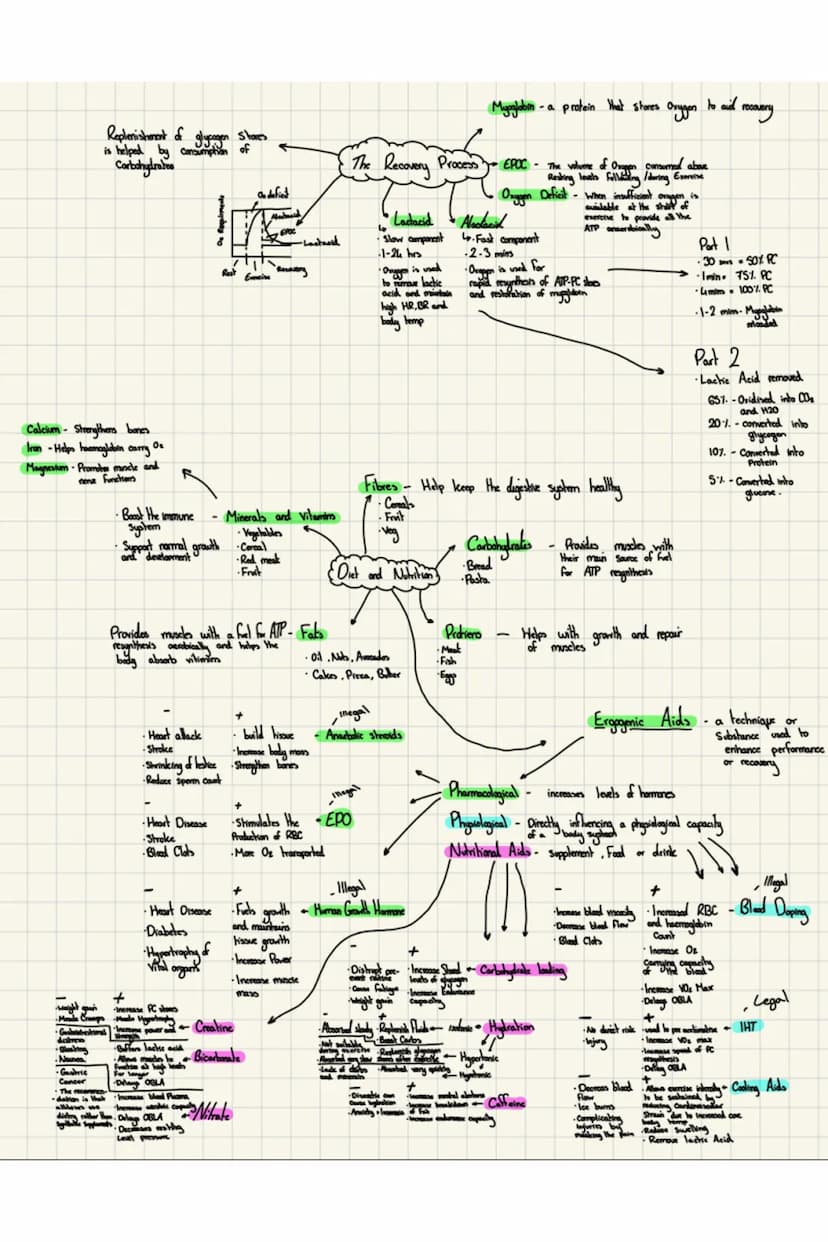 Myoglobin - a protein that stores Oxygen to aid recovery
Replenishment of glycogen stores
is helped by consumption of
Carbohydrates
The Recovery Process
EPOC - The volume of Oxygen consumed above
Resting levels following/during Exercise
Oxygen Deficit - When insufficient oxygen is
available at the start of
exercise to provide all the
ATP anaerobically
O2 Requirements
O2 deficit
Alactacid
EPOC
Lactacid
Rest
Exercise
Recovery
Lactacid
· Slow component
· 1-24 hrs
· Oxygen is used
to remove lactic
acid and maintain
high HR, BR and
body temp
Alactacid
Fast component
· 2-3 mins
· Oxygen is used for
rapid resynthesis of ATP-PC stores
and restoration of myoglobin
Part 1
· 30 secs = 50% PC
· 1 min = 75% PC
· 4 mins = 100% PC
· 1-2 mins - Myoglobin
reloaded
Part 2
· Lactic Acid removed
65% - Oxidised into CO2
and H2O
20% - converted into
glycogen
10% - Converted into
Protein
5% - Converted into
glucose.
Calcium - Strengthens bones
Iron - Helps haemoglobin carry O2
Magnesium - Promotes muscle and
nerve functions
· Boost the immune
System
· Support normal growth
and development
- Minerals and Vitamins
· Vegetables
· Cereal
· Red meat
· Fruit
Fibres - Help keep the digestive system healthy
· Cereals
· Fruit
· Veg
Diet and Nutrition
Carbohydrates - Provides muscles with
their main source of fuel
for ATP resynthesis
· Bread
· Pasta
Provides muscles with a fuel for ATP - Fats
resynthesis aerobically and helps the
body absorb vitamins
· Oil, Nuts, Avocados
· Cakes, Pizza, Butter
Protein - Helps with growth and repair
of muscles
· Meat
· Fish
· Eggs
Ergogenic Aids - a technique or
Substance used to
enhance performance
or recovery
Pharmacological - increases levels of hormones
Physiological - Directly influencing a physiological capacity
of a body system
Nutritional Aids - Supplement, Food or drink
illegal
- Anabolic steroids
+
· build tissue
· Increase body mass
· Strengthen bones
-
· Heart attack
· Stroke
· Shrinking of testies
· Reduce sperm count
illegal
EPO
+
· Stimulates the
Production of RBC
· More O2 transported
-
· Heart Disease
· Stroke
· Blood Clots
Illegal
Human Growth Hormone
+
· Fuels growth
and maintains
tissue growth
· Increase Power
· Increase muscle
mass
-
· Heart Disease
· Diabetes
· Hypertrophy of
Vital organs
Illegal
- Blood Doping
+
· Increased RBC
and haemoglobin
Count
· Increase O2
Carrying capacity
of the blood
· Increase VO2 Max
· Delays OBLA
-
· Increase blood viscosity
· Decrease blood flow
· Blood Clots
Legal
IHT
+
· Increase VO2 max
· Increase speed of PC
resynthesis
· Delay OBLA
-
· No direct risk
· Injury
Cooling Aids
+
· Allows exercise intensity
to be sustained by
reducing Cardiovascular
Strain due to increased core
body temp
· Reduce swelling
· Remove lactic Acid
-
· Decreases blood
flow
· Ice burns
· Complicating
injuries by
masking the pain
Carbohydrate loading
+
· Increase Stored
levels of glycogen
· Increase Endurance
Capacity
-
· Disrupt pre-
event routine
· Cause fatigue
· Weight gain
Hydration
Isotonic
· Replenish Fluids
· Boost Carbs
Hypertonic
Hypotonic
· Absorbed very quickly
· Absorbed slowly
Caffeine
+
· Increase mental alertness
· Increase breakdown
of fat
· Increase endurance capacity
-
· Anxiety
Creatine
+
· Increase PC stores
· Muscle Hypertrophy
· Increase power and
strength
-
· Weight gain
· Muscle Cramps
Bicarbonate
· Buffers lactic acid
· Allows muscles to
function at high levels
for longer
· Delays OBLA
· Gastrointestinal
distress
· Bloating
· Nausea
Nitrate
· Increase blood Plasma
· Delays OBLA
· Decreases resting
blood pressure
· Gastric
Cancer